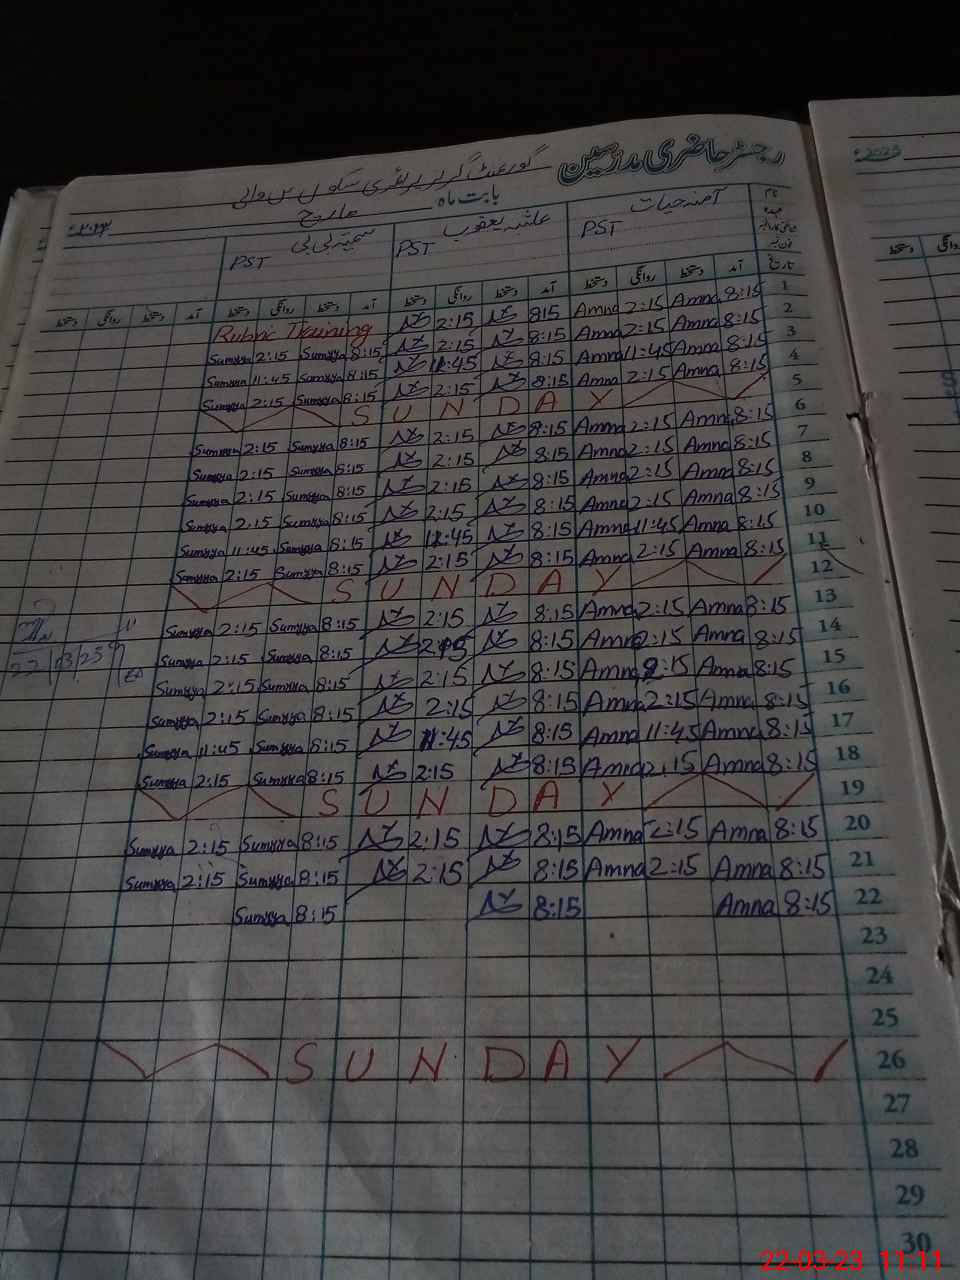 رجسٹر حاضری مدرسین گورنمنٹ گرلز پرائمری سکول
بابت ماہ مارچ
نام آمنہ حیات عائشہ یعقوب سمیّہ بی بی
عہدہ PST PST PST
تاریخ آمد دستخط روانگی دستخط آمد دستخط روانگی دستخط آمد دستخط روانگی دستخط آمد دستخط روانگی دستخط
Rubric Training 2:15 815 Amna 2:15 Amna 8:15 1
Sumyya 2:15 Sumyya 8:15 2:15 8:15 Amna 2:15 Amna 8:15 2
Sumyya 11:45 Sumyya 8:15 11:45 8:15 Amna 11:45 Amna 8:15 3
Sumyya 2:15 Sumyya 8:15 2:15 8:15 Amna 2:15 Amna 8:15 4
SUNDAY 5
Sumyya 2:15 Sumyya 8:15 2:15 8:15 Amna 2:15 Amna 8:15 6
Sumyya 2:15 Sumyya 8:15 2:15 8:15 Amna 2:15 Amna 8:15 7
Sumyya 2:15 Sumyya 8:15 2:15 8:15 Amna 2:15 Amna 8:15 8
Sumyya 2:15 Sumyya 8:15 2:15 8:15 Amna 2:15 Amna 8:15 9
Sumyya 11:45 Sumyya 8:15 11:45 8:15 Amna 11:45 Amna 8:15 10
Sumyya 2:15 Sumyya 8:15 2:15 8:15 Amna 2:15 Amna 8:15 11
SUNDAY 12
Sumyya 2:15 Sumyya 8:15 2:15 8:15 Amna 2:15 Amna 8:15 13
Sumyya 2:15 Sumyya 8:15 2:15 8:15 Amna 2:15 Amna 8:15 14
Sumyya 2:15 Sumyya 8:15 2:15 8:15 Amna 2:15 Amna 8:15 15
Sumyya 2:15 Sumyya 8:15 2:15 8:15 Amna 2:15 Amna 8:15 16
Sumyya 11:45 Sumyya 8:15 11:45 8:15 Amna 11:45 Amna 8:15 17
Sumyya 2:15 Sumyya 8:15 2:15 8:15 Amna 2:15 Amna 8:15 18
SUNDAY 19
Sumyya 2:15 Sumyya 8:15 2:15 8:15 Amna 2:15 Amna 8:15 20
Sumyya 2:15 Sumyya 8:15 2:15 8:15 Amna 2:15 Amna 8:15 21
Sumyya 8:15 8:15 Amna 8:15 22
23
24
25
SUNDAY 26
27
28
29
30
22-03-23 11:11